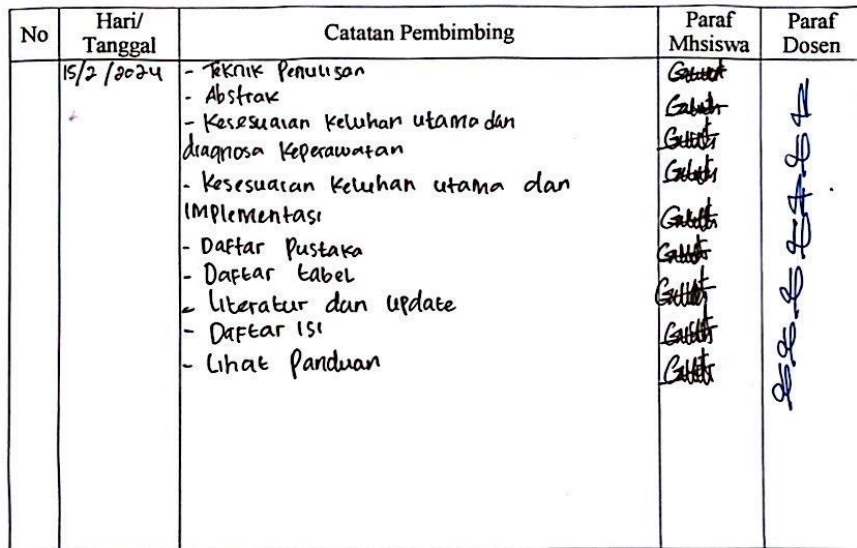 No
Hari/
Tanggal
Catatan Pembimbing
Paraf
Mhsiswa
Paraf
Dosen
15/2/2024
- Teknik Penulisan
- Abstrak
- Kesesuaian Keluhan utama dan
diagnosa Keperawatan
- Kesesuaian Keluhan utama dan
Implementasi
- Daftar Pustaka
- Daftar tabel
- Literatur dan update
- Daftar isi
- Lihat Panduan